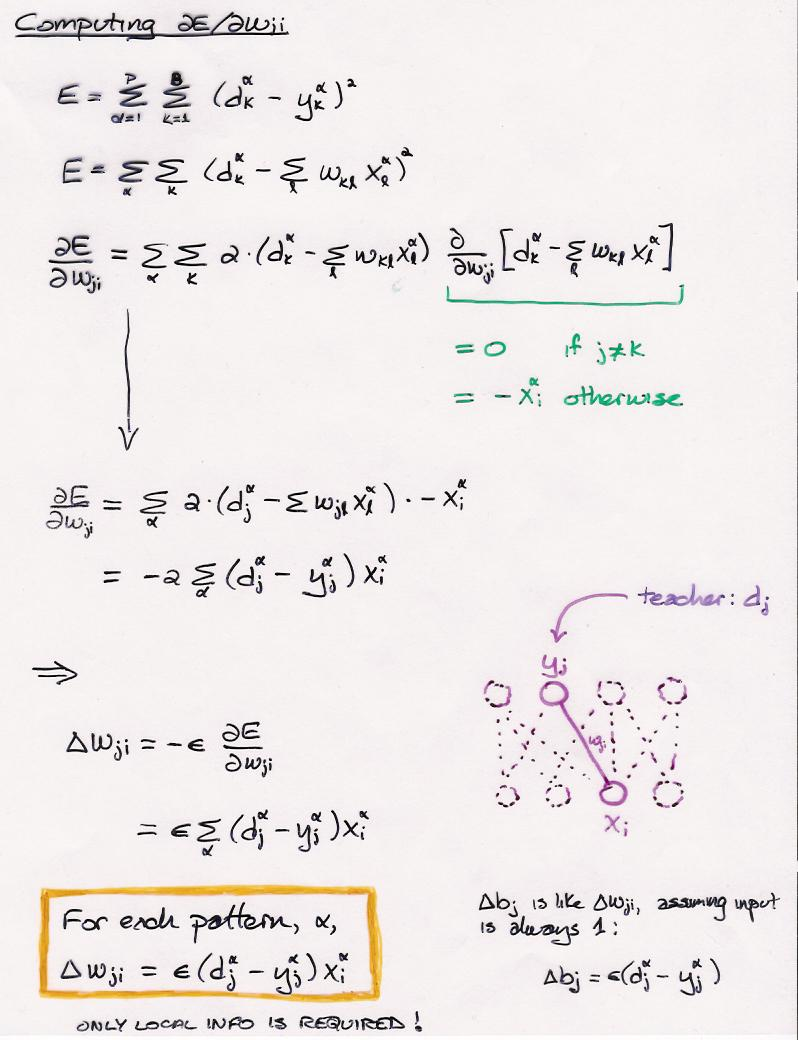 Computing ∂E/∂wji
E = Σ_{α=1}^{P} Σ_{k=1}^{B} (d_k^α - y_k^α)²
E = Σ_α Σ_k (d_k^α - Σ_l w_kl x_l^α)²
∂E/∂w_ji = Σ_α Σ_k 2·(d_k^α - Σ_l w_kl x_l^α) ∂/∂w_ji [d_k^α - Σ_l w_kl x_l^α]
= 0 if j≠k
= -x_i^α otherwise
∂E/∂w_ji = Σ_α 2·(d_j^α - Σ w_jl x_l^α) · -x_i^α
= -2 Σ_α (d_j^α - y_j^α) x_i^α
teacher: d_j
y_j
w_ji
x_i
⇒
Δw_ji = -ϵ ∂E/∂w_ji
= ϵ Σ_α (d_j^α - y_j^α) x_i^α
For each pattern, α,
Δw_ji = ϵ(d_j^α - y_j^α) x_i^α
ONLY LOCAL INFO IS REQUIRED!
Δb_j is like Δw_ji, assuming input
is always 1:
Δb_j = ϵ(d_j^α - y_j^α)